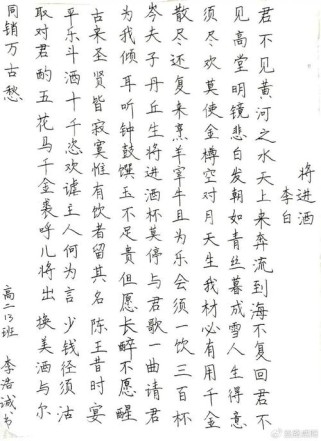 将进酒
李白
君不见黄河之水天上来奔流到海不复回君不
见高堂明镜悲白发朝如青丝暮成雪人生得意
须尽欢莫使金樽空对月天生我材必有用千金
散尽还复来烹羊宰牛且为乐会须一饮三百杯
岑夫子丹丘生将进酒杯莫停与君歌一曲请君
为我倾耳听钟鼓馔玉不足贵但愿长醉不愿醒
古来圣贤皆寂寞惟有饮者留其名陈王昔时宴
平乐斗酒十千恣欢谑主人何为言少钱径须沽
取对君酌五花马千金裘呼儿将出换美酒与尔
同销万古愁
高二13班 李浩诚书